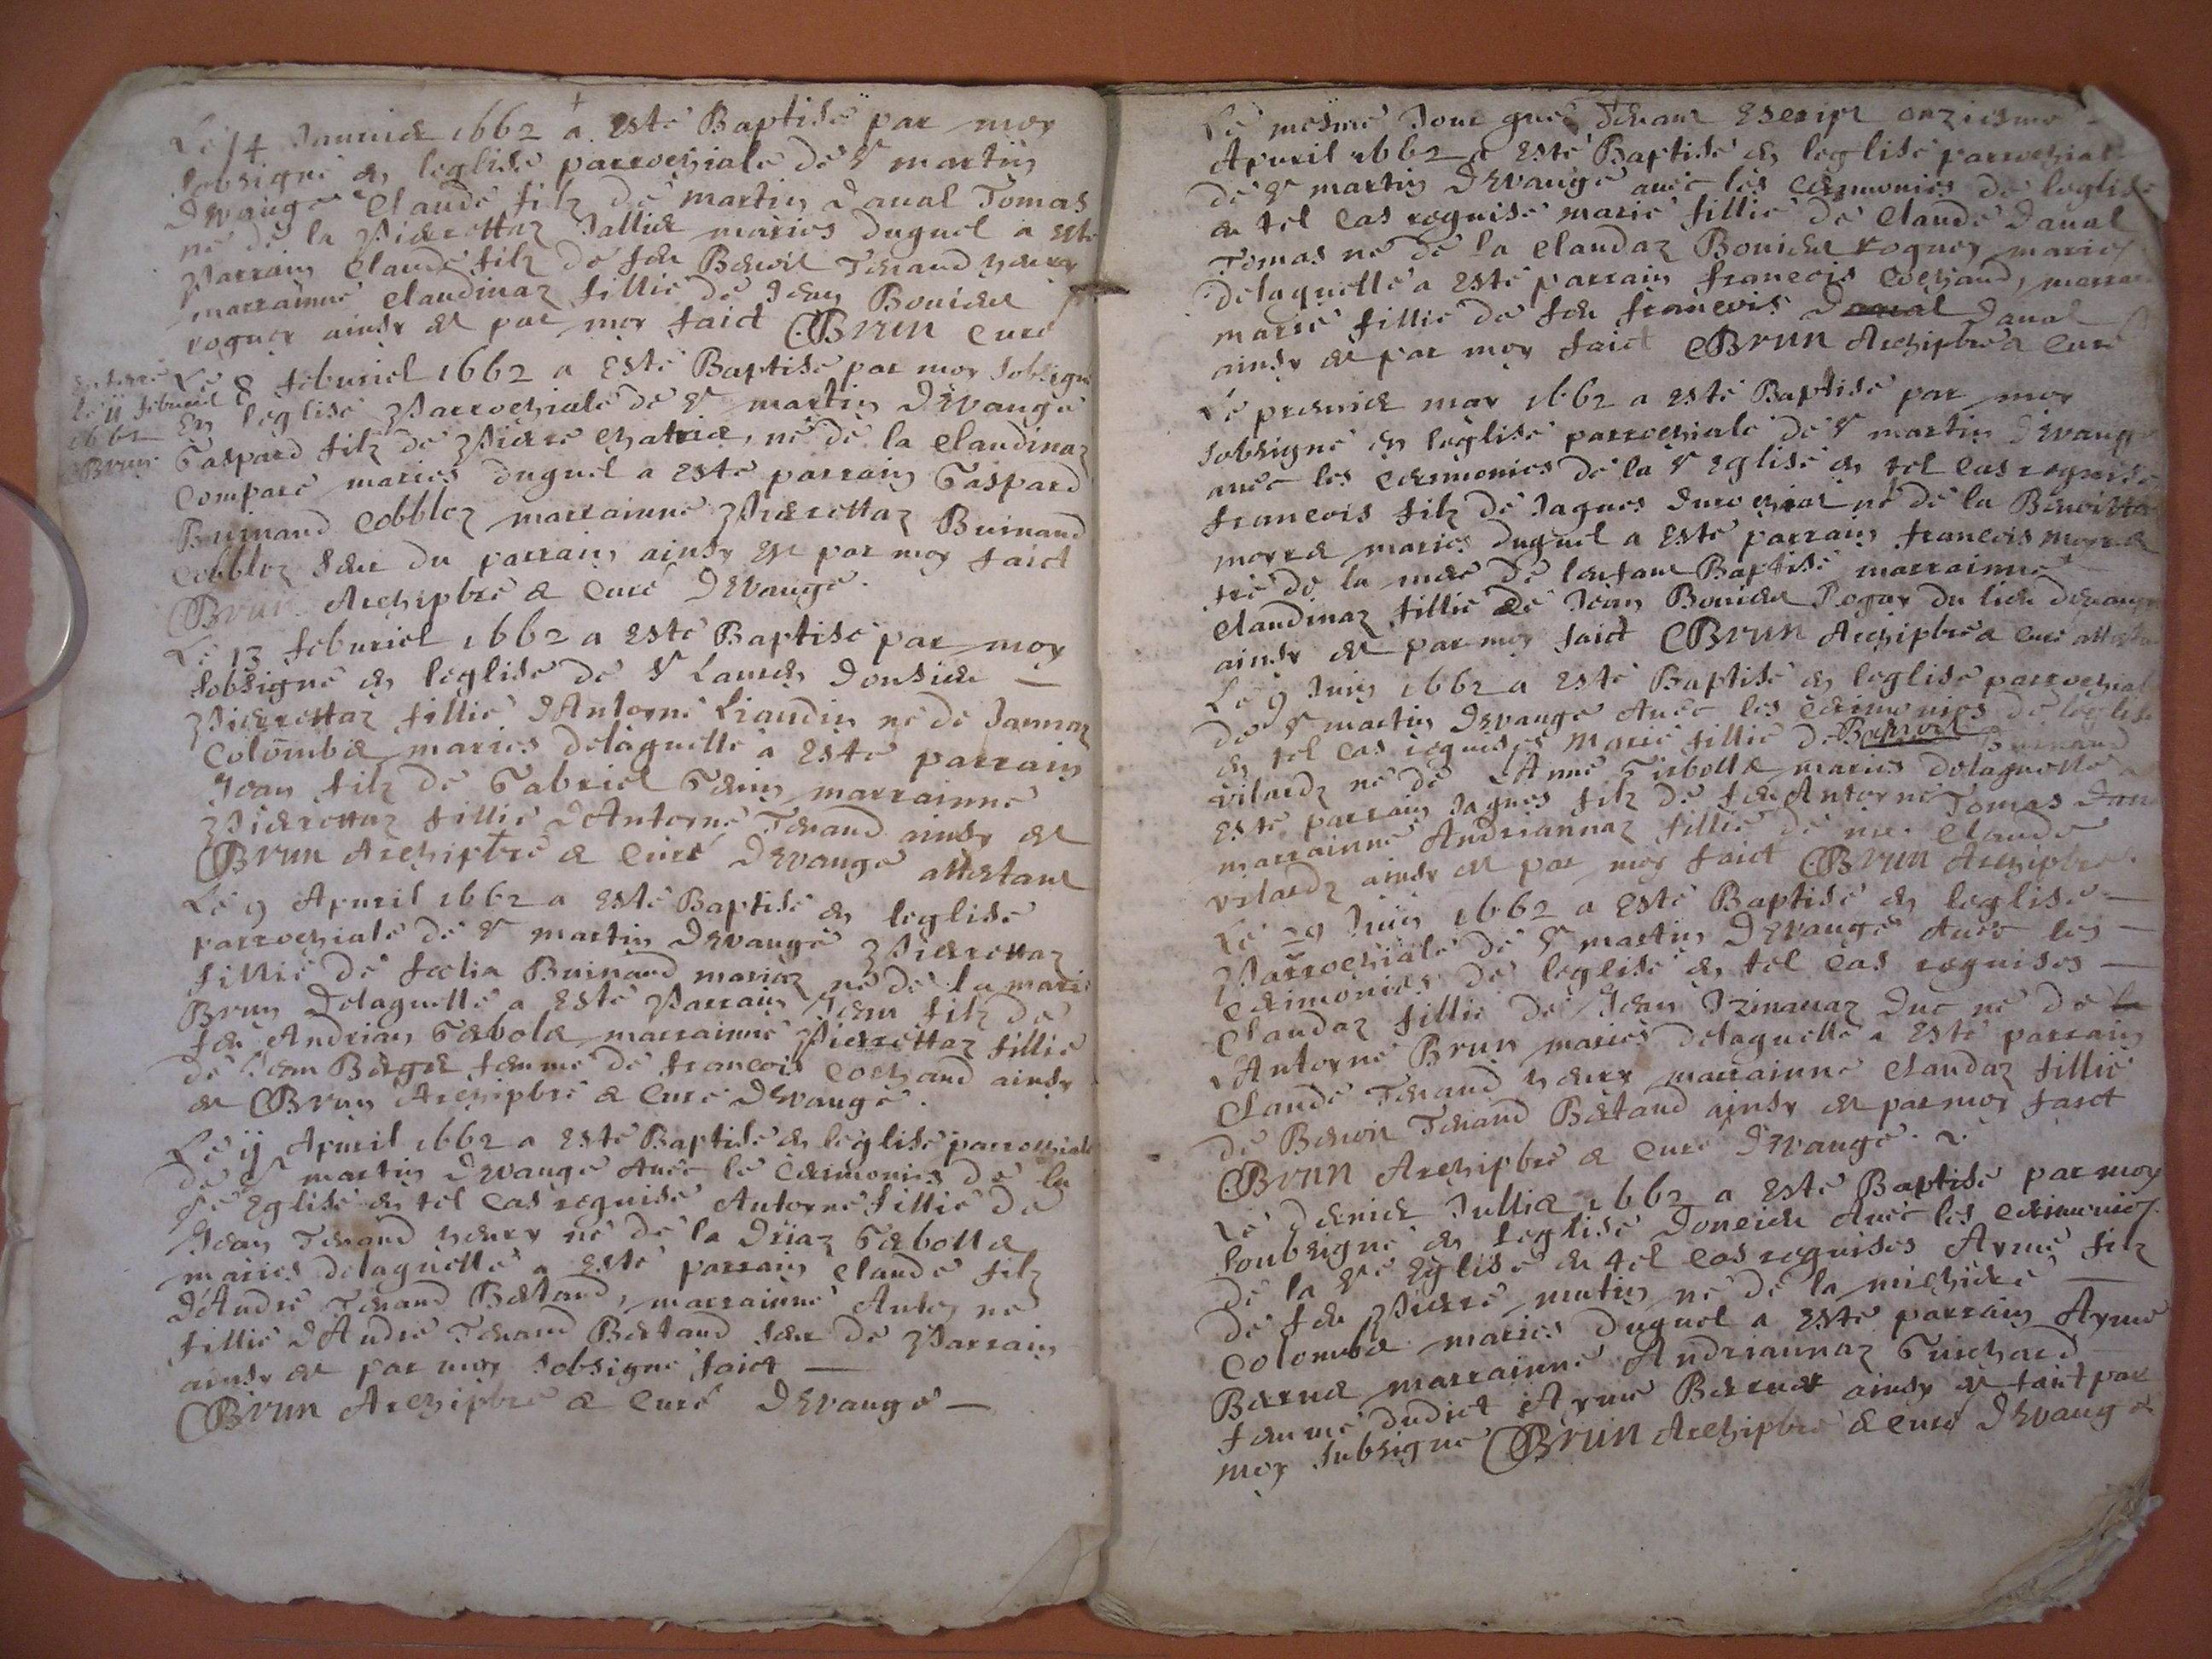 Le 14 Januier 1662 a esté Baptisé par moy
sobsigné en leglise parrochiale de St martin
DEvange Claude filz de martin Daual Tomas
né de la Pierrettaz Jallier mariés duquel a esté
Parrain Claude filz de feu Benoit Tenand henry
marrainne Claudinaz fillie de Jean Bouier
roguey ainsy est par moy faict CBrun Curé
Enterré
le 11 feburiel
1662
CBrun
Le 8 feburiel 1662 a esté Baptisé par moy sobsigné
En leglise Parrochiale de St martin DEvange
Gaspard filz de Pierre Chatrier, né de la Claudinaz
Comparé mariés duquel a esté parrain Gaspard
Buinand Cobbloz marrainne Pierrettaz Buinand
Cobbloz seur du parrain ainsy est par moy faict
CBrun Archipbre & Curé DEvange.
Le 13 feburiel 1662 a esté Baptisé par moy
sobsigné en leglise de St Lauren Donsieu —
Pierrettaz fillie DAntoyné Liaudin né de Jannaz
Colomber mariés delaquelle a esté parrain
Jean filz de Gabriel marrainné
Pierrettaz fillie DAntoyné Tenand ainsy est
CBrun Archiptré & Curé DEvange attestant
Le 9 Apuril 1662 a esté Baptisé en leglise
parrochiale de St martin DEvange Pierrettaz
fillie de foelix Buinand mariaz né de la marie
Brun Delaquelle a esté Parrain Jean filz de
feu Andrian Gerboler marrainné Pierrettaz fillie
de Jean Berger femme de francois Cochand ainsy
est CBrun Archipbré & Curé DEvange.
Le 11 Apuril 1662 a esté Baptisé en leglise parrochiale
de St martin DEvange Auec le Cerimonies de la
Ste Eglise en tel Cas requise Antoyné fillie de
Jean Tenand henry né de la Driaz Gerboller
mariés delaquelle a esté parrain Claude filz
DAndré Tenand Bertand, marrainné Antoyné
fillie DAndré Tenand Bertand seur de Parrain
ainsy est par moy sobsigné faict —
CBrun Archipbre & Curé DEvange —
Le mesme Jour que deuant Escript onziesme
Apuril 1662 a esté Baptisé en leglise parrochiale
de St martin DEvange auec les Cerimonies de leglise
en tel Cas requise marie fillie de Claude Daual
Tomas né de la Claudaz Bouier roguey mariés
delaquelle a esté parrain francois Cochand, marrainne
marie fillie de feu francois Daual Daual
ainsy est par moy faict CBrun Archipbre & Curé
Le premier may 1662 a esté Baptisé par moy
sobsigné en leglise parrochiale de St martin DEvange
auec les Cerimonies de la St Eglise en tel Cas requise
francois filz de Jaques né de la Benoitte
moyrer mariés duquel a esté parrain francois moyrer
fré de la mere de lenfant Baptisé marrainné
Claudinaz fillie de Jean Bouier Roguy du lieu
ainsy est par moy faict CBrun Archipbre & Curé attestant
Le 9 Juin 1662 a esté Baptisé en leglise parrochial
de St martin DEvange Auec les Cerimonies de leglise
en tel Cas requises Marie fillie de Benoit Buinand
vilardz né de Anne Girboller mariés delaquelle a
esté parrain Jaques filz de feu Antoyné Tomas
marrainné Andriannaz fillie de me. Claude
vilardz ainsy est par moy faict CBrun Archipbre.
Le 29 Juin 1662 a esté Baptisé en leglise —
Parrochiale de St martin DEvange Auec les —
Cerimonies de leglise en tel Cas requises —
Claudaz fillie de Jean Duc né de la
Antoyné Brun mariés delaquelle a esté parrain
Claude Tenand henry marrainné Claudaz fillie
de Benoit Tenand Bertand ainsy est par moy faict
CBrun Archipbre & Curé DEvange.
Le dernier Jullier 1662 a esté Baptisé par moy
soubsigné en leglise Doncieu Auec les Cerimonies
de la Ste Eglise en tel Cas requises Aymé filz
de feu Pierre mutin né de la michiere —
Colomber mariés duquel a esté parrain Aymé
Berrier marrainné Andriannaz Guichard
femme dudict Aymé Berrier ainsy est faict par
moy subsigné CBrun Archipbre & Curé DEvange